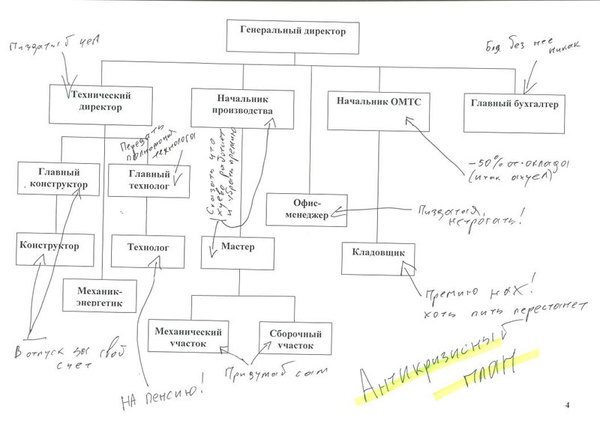 Генеральный директор
Пиздатый чел
Бля без нее
никак
Технический
директор
Начальник
производства
Начальник ОМТС
Главный бухгалтер
Передать
полномочия
технолога
Сказать что
хуёво работают
и убрать премию
-50% от оклада
(итак ахуел)
Главный
конструктор
Главный
технолог
Офис-
менеджер
Пиздатая,
нетрогать!
Конструктор
Технолог
Мастер
Кладовщик
Механик-
энергетик
Премию нах!
хоть пить перестанет
Механический
участок
Сборочный
участок
В отпуск за свой
счет
Придумаю сам
НА пенсию!
Антикризисный
план
4